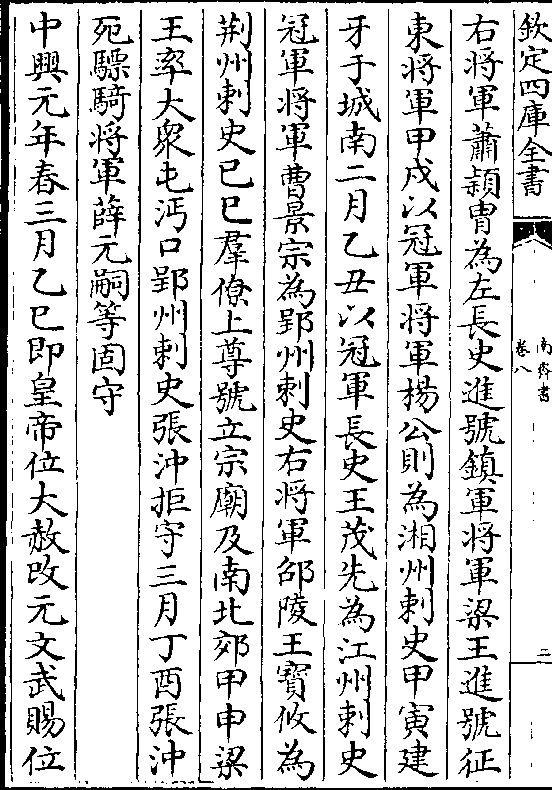 欽定四庫全書
南齊書
卷八
二
右將軍蕭頴冑為左長史進號鎮軍將軍梁王進號征
東將軍甲戌以冠軍將軍楊公則為湘州刺史甲寅建
牙于城南二月乙丑以冠軍長史王茂先為江州刺史
冠軍將軍曹景宗為郢州刺史右將軍邵陵王寶攸為
荆州刺史巳巳羣僚上尊號立宗廟及南北郊甲申梁
王率大衆屯沔口郢州刺史張沖拒守三月丁酉張沖
死驃騎將軍薛元嗣等固守
中興元年春三月乙巳即皇帝位大赦改元文武賜位